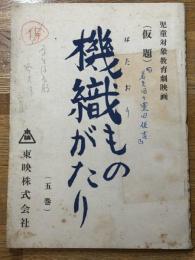 児童対象教育劇映画
（仮題）
機織もの
はたおり
がたり
（五巻）
東映株式会社